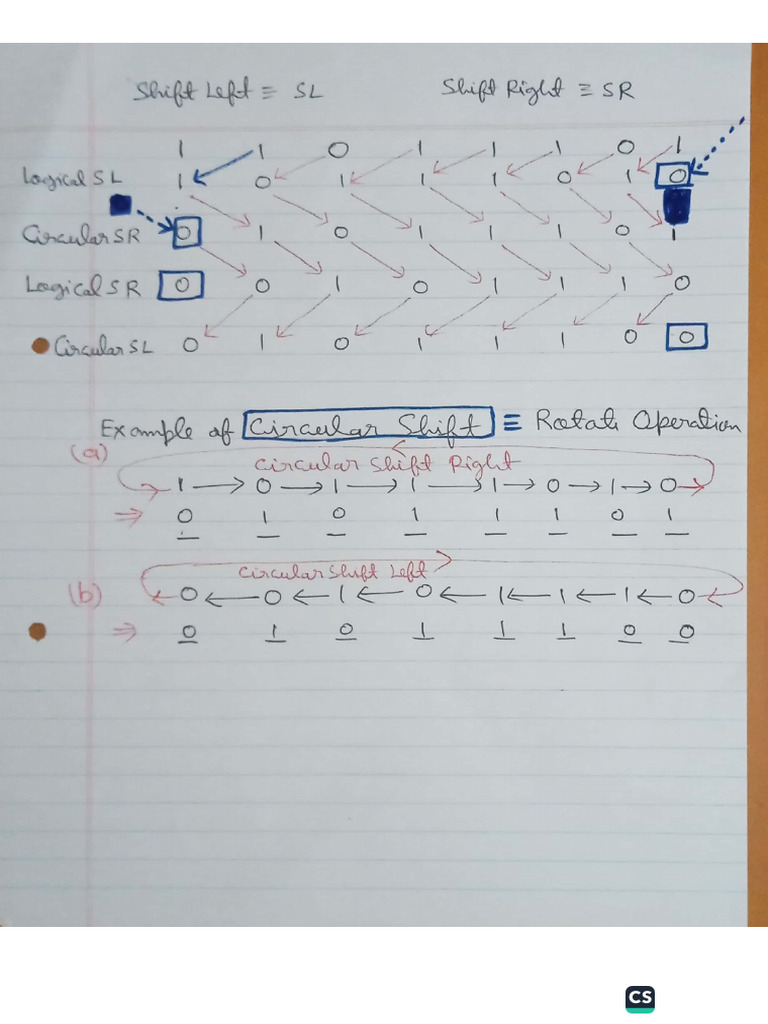 Shift Left ≡ SL Shift Right ≡ SR
1 1 0 1 1 1 0 1
Logical SL 1 0 1 1 1 0 1 0
Circular SR 0 1 0 1 1 1 0 1
Logical SR 0 0 1 0 1 1 1 0
Circular SL 0 1 0 1 1 1 0 0
Example of Circular Shift ≡ Rotate Operation
(a) Circular Shift Right
1 → 0 → 1 → 1 → 1 → 0 → 1 → 0 →
⇒ 0 1 0 1 1 1 0 1
Circular Shift Left
(b) ← 0 ← 0 ← 1 ← 0 ← 1 ← 1 ← 1 ← 0 ←
⇒ 0 1 0 1 1 1 0 0
CS